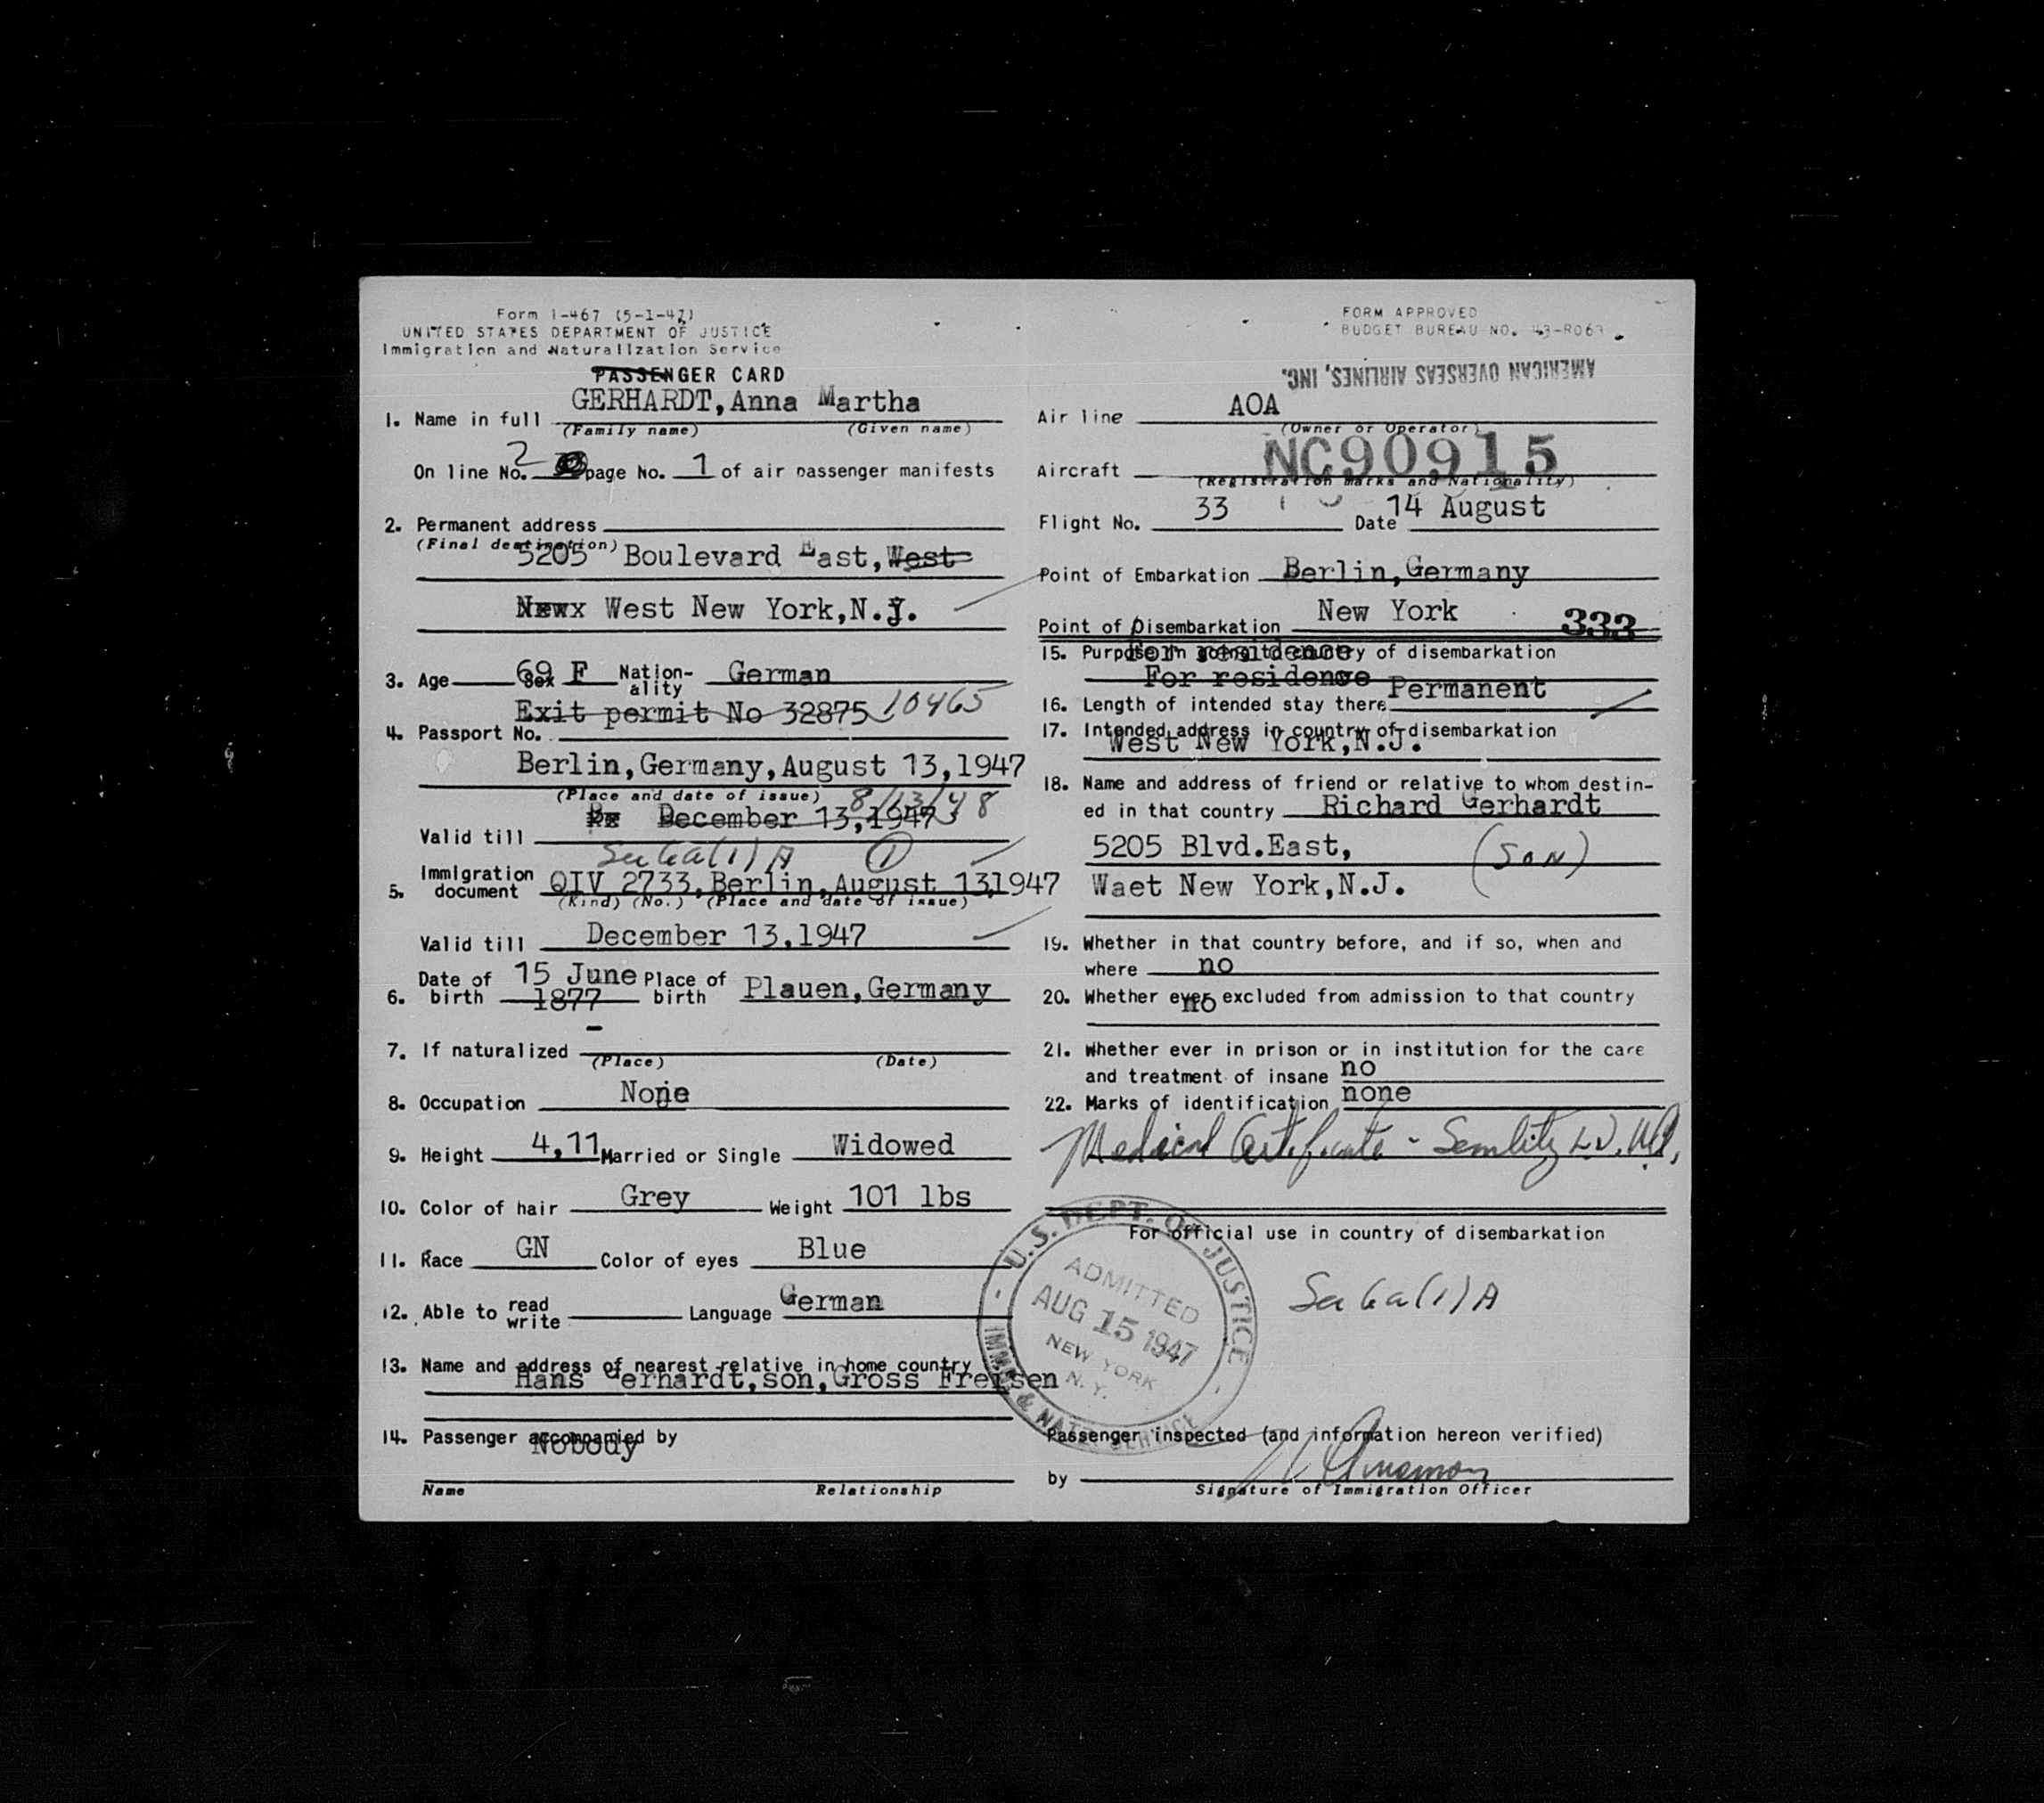 Form I-467 (5-1-47)
UNITED STATES DEPARTMENT OF JUSTICE
Immigration and Naturalization Service
PASSENGER CARD
GERHARDT, Anna Martha
1. Name in full
(Family name) (Given name)
On line No. 2 page No. 1 of air passenger manifests
2. Permanent address
(Final destination)
5205 Boulevard East, West
Newx West New York, N.J.
3. Age 69 Sex F Nationality German
Exit permit No 32875 10465
4. Passport No.
Berlin, Germany, August 13, 1947
(Place and date of issue) 8/13/48
December 13, 1947
Valid till
(1) A 1
5. Immigration document QIV 2733, Berlin, August 13, 1947
(Kind) (No.) (Place and date of issue)
Valid till December 13, 1947
6. Date of birth 15 June 1877 Place of birth Plauen, Germany
-
7. If naturalized
(Place) (Date)
8. Occupation None
9. Height 4,11 Married or Single Widowed
10. Color of hair Grey Weight 101 lbs
11. Race GN Color of eyes Blue
12. Able to read write Language German
13. Name and address of nearest relative in home country
Hans Gerhardt, son, Gross
14. Passenger accompanied by
Nobody
Name Relationship
FORM APPROVED
BUDGET BUREAU NO. 43-R063
AMERICAN OVERSEAS AIRLINES, INC.
Air line AOA
(Owner or Operator)
Aircraft NC90915
(Registration marks and Nationality)
Flight No. 33 Date 14 August
Point of Embarkation Berlin, Germany
Point of Disembarkation New York 333
15. Purpose in going to country of disembarkation
For residence
For residence
16. Length of intended stay there Permanent
17. Intended address in country of disembarkation
West New York, N.J.
18. Name and address of friend or relative to whom destin-
ed in that country Richard Gerhardt
5205 Blvd. East, (SON)
Waet New York, N.J.
19. Whether in that country before, and if so, when and
where no
20. Whether ever excluded from admission to that country
no
21. Whether ever in prison or in institution for the care
and treatment of insane no
22. Marks of identification none
Medical Certificate -
For official use in country of disembarkation
(1) A
U.S. DEPT. OF JUSTICE
ADMITTED
AUG 15 1947
NEW YORK
N.Y.
IMM. & NATZ. SERVICE
Passenger inspected (and information hereon verified)
by
Signature of Immigration Officer